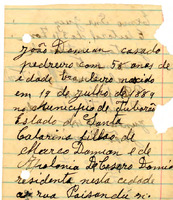 João Damian casado
pedreiro com 58 anos de
idade brasileiro nascido
em 19 de julho de 1889
no Municipio de Tubarão
Estado de Santa
Catarina filho de
Marco Damian e de
Apolonia De Cesaro Damian
residente nesta cidade
a rua Paisandú n.